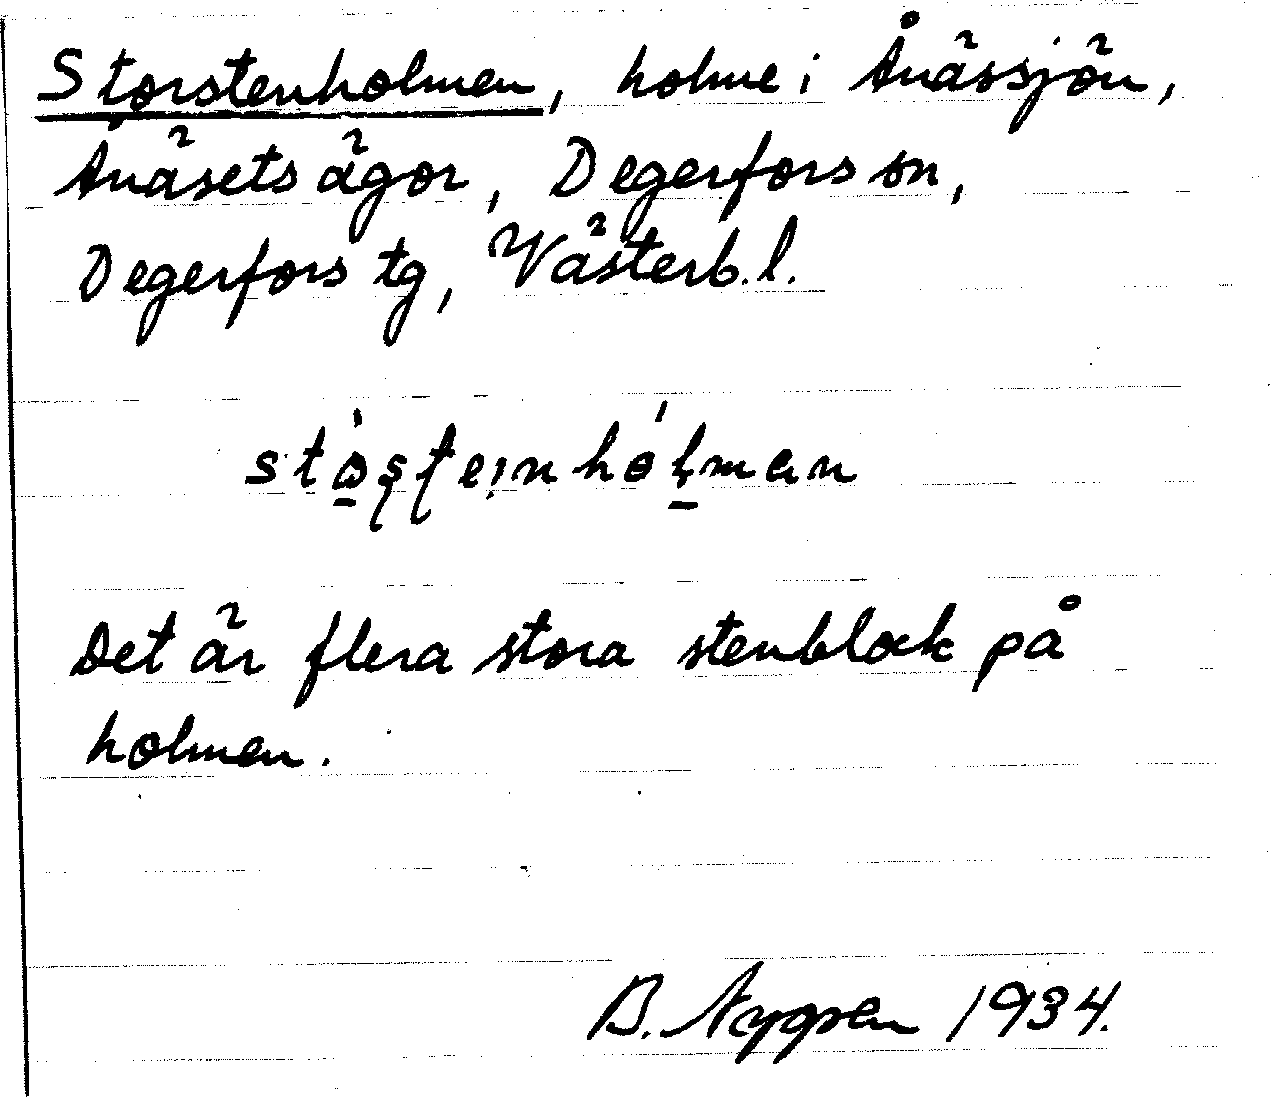 Storstenholmen, holme i Ånässjön,
Ånäsets ägor, Degerfors sn,
Degerfors tg, Västerb. l.
Det är flera stora stenblock på
holmen.
B. Nygren 1934.